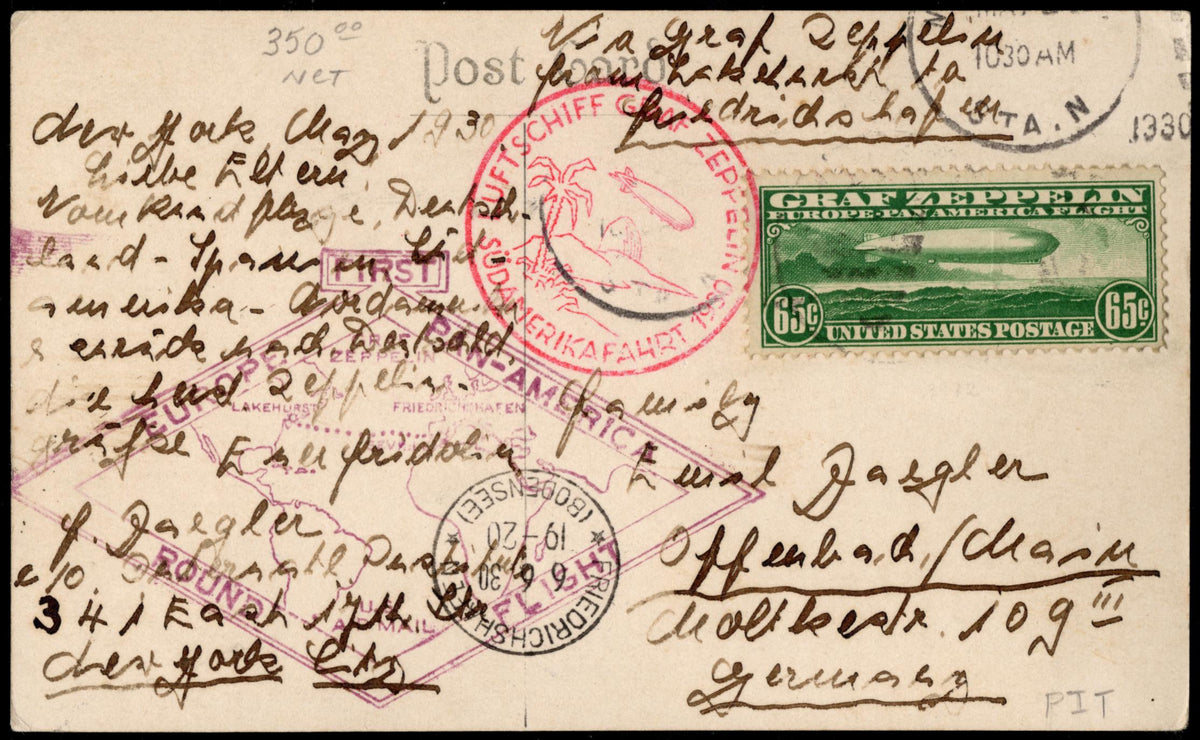 350⁰⁰
NET
Post Card
Via Graf Zeppelin
from Lakehurst to
Friedrichshafen
10 30 AM
STA. N
1930
New York, May 1930
Liebe Eltern,
Deutsch-
land - Spanien - Süd-
amerika - Nordamerika
& zurück nach Deutschld.
die Zeppelin-
grüße Euer Fridolin
F. Jaegler
c/o
341 East 17th Str.
New York City
LUFTSCHIFF GRAF ZEPPELIN
SÜDAMERIKAFAHRT 1930
GRAF ZEPPELIN
EUROPE PAN AMERICA FLIGHT
65¢ 65¢
UNITED STATES POSTAGE
FIRST
EUROPE PAN-AMERICA
ROUND FLIGHT
GRAF
ZEPPELIN
LAKEHURST FRIEDRICHSHAFEN
SEVILLE
U.S.
AIR MAIL
FRIEDRICHSHAFEN
(BODENSEE)
6 6 30
19-20
Family
Ernst Jaegler
Offenbach/Main
Moltkestr. 109 III
Germany
PIT